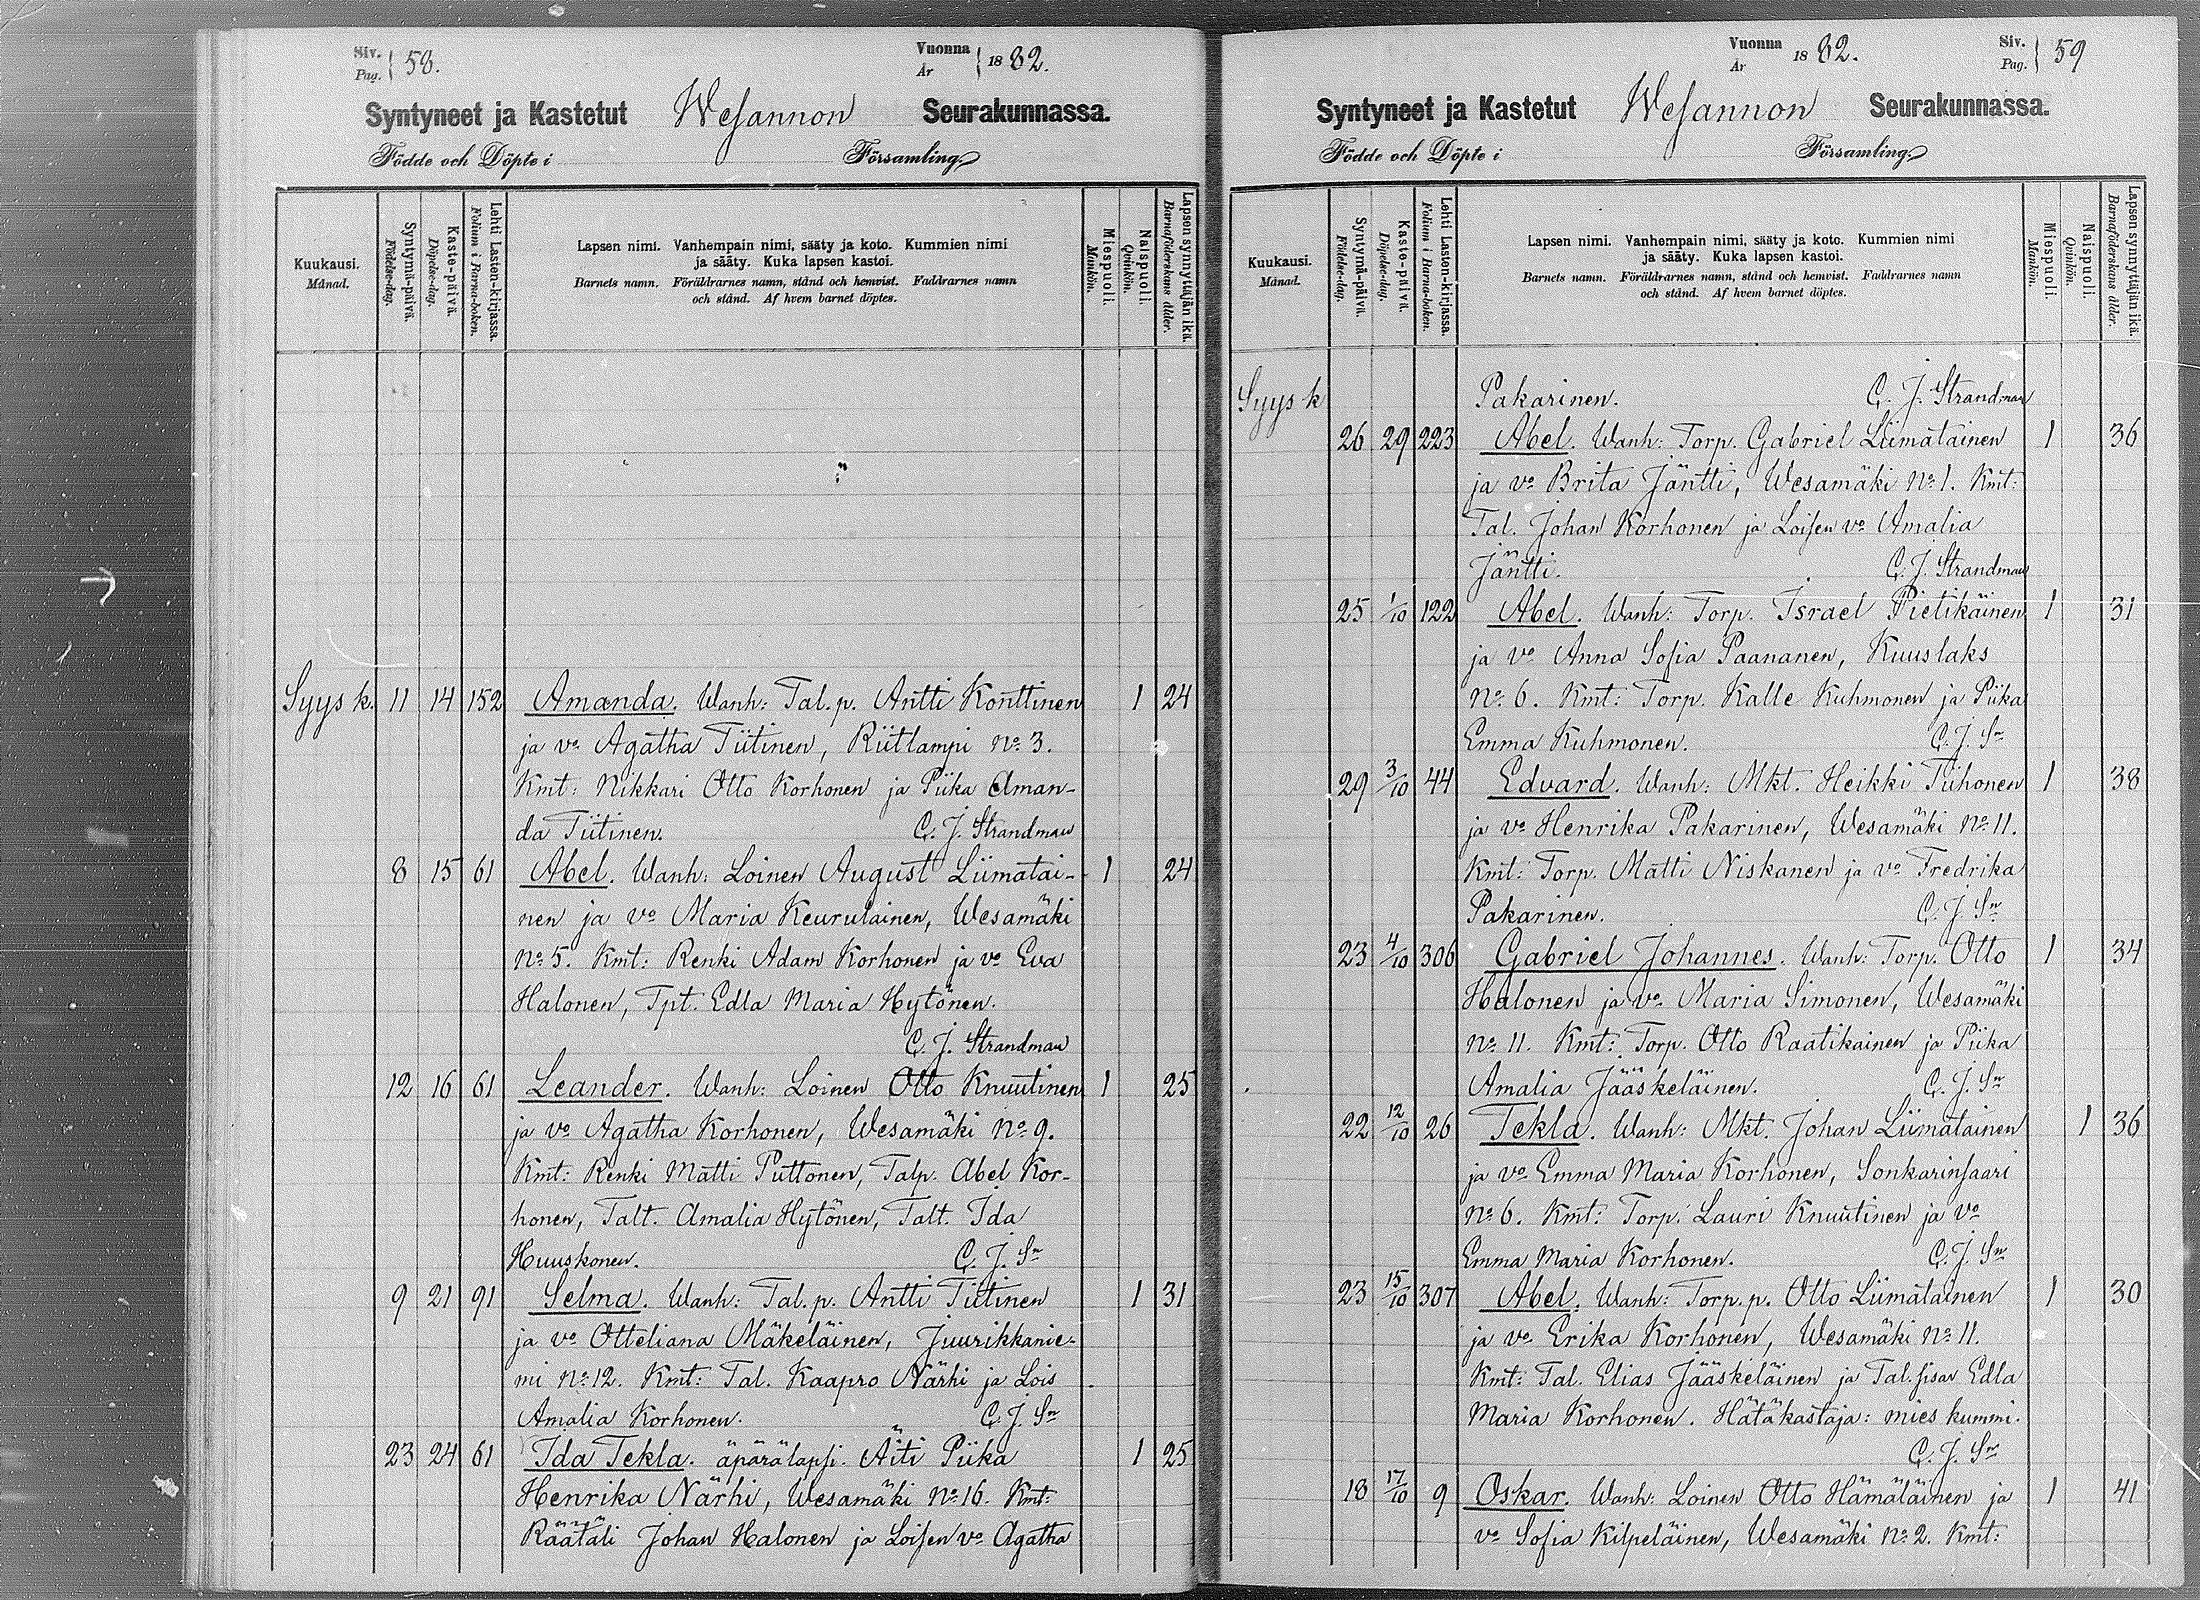 Siv. Pag. 58.
Vuonna År 1882.
Syntyneet ja Kastetut Wesannon Seurakunnassa.
Födde och Döpte i Församling.
Kuukausi. Månad.
Syntymä-päivä. Födelse-dag.
Kaste-päivä. Döpelse-dag.
Lehti Lasten-kirjassa. Folium i Barna-boken.
Lapsen nimi. Vanhempain nimi, sääty ja koto. Kummien nimi
ja sääty. Kuka lapsen kastoi.
Barnets namn. Föräldrarnes namn, stånd och hemvist. Faddrarnes namn
och stånd. Af hvem barnet döptes.
Miespuoli. Mankön.
Naispuoli. Qvinkön.
Lapsen synnyttäjän ikä. Barnaföderskans ålder.
Syysk. 11 14 152 Amanda. Wanh: Tal.p. Antti Konttinen 1 24
ja vo Agatha Tiitinen, Riitlampi No 3.
Kmt: Nikkari Otto Korhonen ja Piika Aman-
da Tiitinen. C. J. Strandman
8 15 61 Abel. Wanh: Loinen August Liimatai- 1 24
nen ja vo Maria Keurulainen, Wesamäki
No 5. Kmt: Renki Adam Korhonen ja vo Eva
Halonen, Tpt. Edla Maria Hytönen.
C. J. Strandman
12 16 61 Leander. Wanh: Loinen Otto Knuutinen 1 25
ja vo Agatha Korhonen, Wesamäki No 9.
Kmt: Renki Matti Puttonen, Talp. Abel Kor-
honen, Talt. Amalia Hytönen, Talt. Ida
Huuskonen. C. J. Sn
9 21 91 Selma. Wanh: Tal.p. Antti Tiitinen 1 31
ja vo Otteliana Mäkeläinen, Juurikkanie-
mi No 12. Kmt: Tal. Kaapro Närhi ja Lois
Amalia Korhonen. C. J. Sn
23 24 61 Ida Tekla. äpärälapsi. Äiti Piika 1 25
Henrika Närhi, Wesamäki No 16. Kmt:
Räätäli Johan Halonen ja Loisen vo Agatha
Vuonna År 1882.
Siv. Pag. 59
Syntyneet ja Kastetut Wesannon Seurakunnassa.
Födde och Döpte i Församling.
Kuukausi. Månad.
Syntymä-päivä. Födelse-dag.
Kaste-päivä. Döpelse-dag.
Lehti Lasten-kirjassa. Folium i Barna-boken.
Lapsen nimi. Vanhempain nimi, sääty ja koto. Kummien nimi
ja sääty. Kuka lapsen kastoi.
Barnets namn. Föräldrarnes namn, stånd och hemvist. Faddrarnes namn
och stånd. Af hvem barnet döptes.
Miespuoli. Mankön.
Naispuoli. Qvinkön.
Lapsen synnyttäjän ikä. Barnaföderskans ålder.
Syysk Pakarinen. C. J. Strandman
26 29 223 Abel. Wanh: Torp. Gabriel Liimatainen 1 36
ja vo Brita Jäntti, Wesamäki No 1. Kmt:
Tal. Johan Korhonen ja Loisen vo Amalia
Jäntti. C. J. Strandman
25 1/10 122 Abel. Wanh: Torp. Israel Pietikäinen 1 31
ja vo Anna Sofia Paananen, Kuuslaks
No 6. Kmt: Torp. Kalle Kuhmonen ja Piika
Emma Kuhmonen. C. J. Sn
29 3/10 44 Edvard. Wanh: Mkt. Heikki Tiihonen 1 38
ja vo Henrika Pakarinen, Wesamäki No 11.
Kmt: Torp. Matti Niskanen ja vo Fredrika
Pakarinen. C. J. Sn
23 4/10 306 Gabriel Johannes. Wanh: Torp. Otto 1 34
Halonen ja vo Maria Simonen, Wesamäki
No 11. Kmt: Torp. Otto Raatikainen ja Piika
Amalia Jääskeläinen. C. J. Sn
22 12/10 26 Tekla. Wanh: Mkt. Johan Liimatainen 1 36
ja vo Emma Maria Korhonen, Sonkarinsaari
No 6. Kmt: Torp. Lauri Knuutinen ja vo
Emma Maria Korhonen. C. J. Sn
23 15/10 307 Abel. Wanh: Torp.p. Otto Liimatainen 1 30
ja vo Erika Korhonen, Wesamäki No 11.
Kmt: Tal. Elias Jääskeläinen ja Tal. sisar Edla
Maria Korhonen. Hätäkastaja: mies kummi.
C. J. Sn
18 17/10 9 Oskar. Wanh: Loinen Otto Hämäläinen ja 1 41
vo Sofia Kilpeläinen, Wesamäki No 2. Kmt: